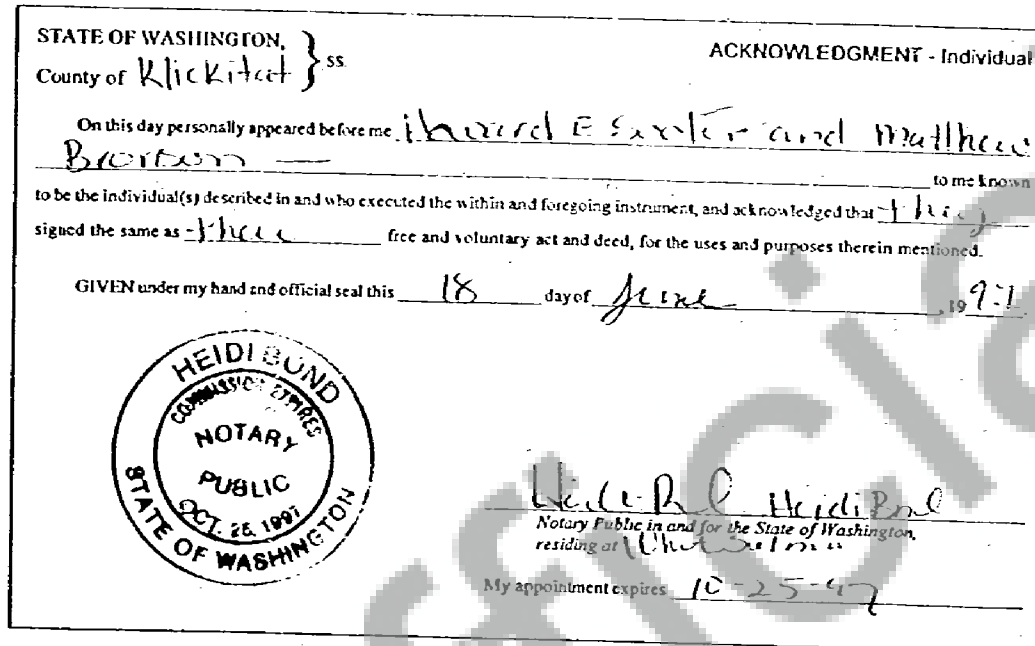 STATE OF WASHINGTON,
County of Klickitat } ss.
ACKNOWLEDGMENT - Individual
On this day personally appeared before me E and Matthew
to me known
to be the individual(s) described in and who executed the within and foregoing instrument, and acknowledged that they
signed the same as their free and voluntary act and deed, for the uses and purposes therein mentioned.
GIVEN under my hand and official seal this 18 day of June, 19
HEIDI BOND
COMMISSION EXPIRES
NOTARY
PUBLIC
OCT. 25, 1997
STATE OF WASHINGTON
Heidi Bond Heidi Bond
Notary Public in and for the State of Washington,
residing at White Salmon
My appointment expires 10-25-97